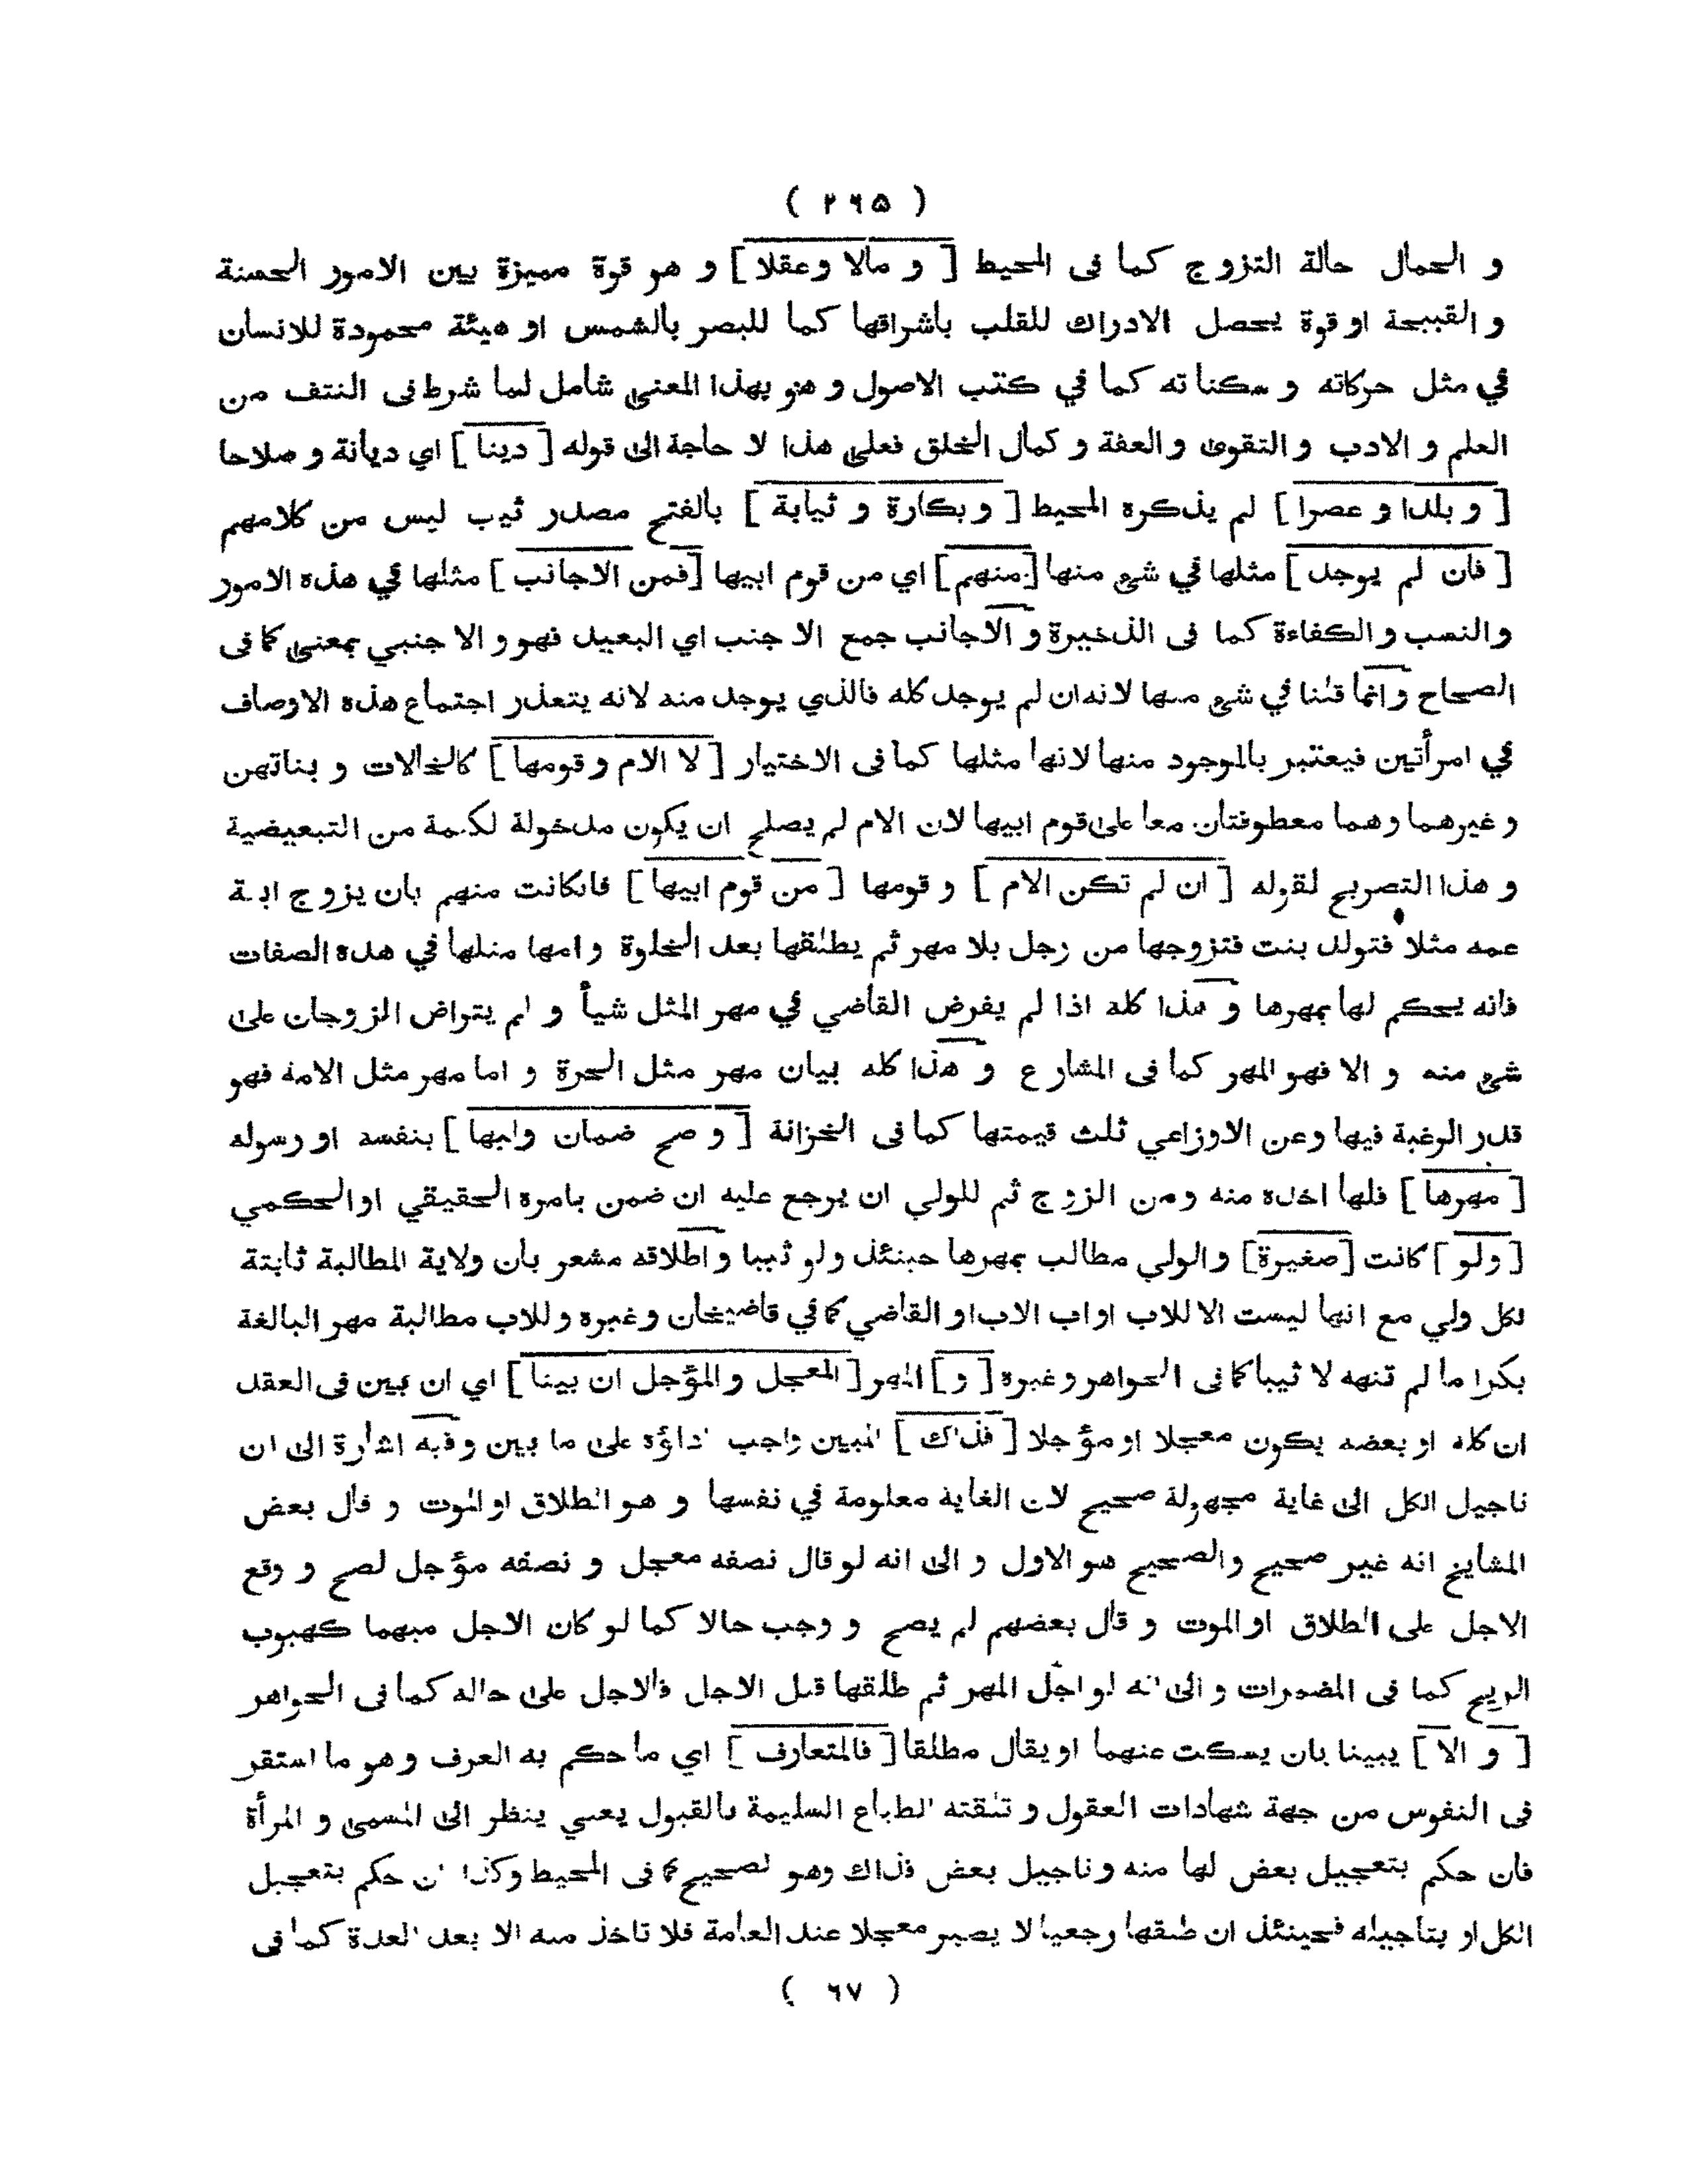 ( ٢٦٥ )
و الجمال حالة التزوج كما فى المحيط [ و مالا وعقلا ] و هو قوة مميزة بين الامور الحسنة
و القبيحة او قوة يحصل الادراك للقلب باشراقها كما للبصر بالشمس او هيئة محمودة للانسان
في مثل حركاته و سكناته كما في كتب الاصول و هو بهذا المعنى شامل لما شرط فى النتف من
العلم و الادب و التقوى والعفة و كمال الخلق فعلى هذا لا حاجة الى قوله [ دينا ] اي ديانة و صلاحا
[ و بلدا و عصرا ] لم يذكره المحيط [ و بكارة و ثيابة ] بالفتح مصدر ثيب ليس من كلامهم
[ فان لم يوجد ] مثلها في شئ منها [ منهم ] اي من قوم ابيها [ فمن الاجانب ] مثلها في هذه الامور
والنسب و الكفاءة كما فى الذخيرة و الاجانب جمع الاجنب اي البعيد فهو و الاجنبي بمعنى كما فى
الصحاح وانما قلنا في شئ منها لانه ان لم يوجد كله فالذي يوجد منه لانه يتعذر اجتماع هذه الاوصاف
في امرأتين فيعتبر بالموجود منها لانها مثلها كما فى الاختيار [ لا الام و قومها ] كالخالات و بناتهن
و غيرهما وهما معطوفتان معا على قوم ابيها لان الام لم يصلح ان يكون مدخولة لكلمة من التبعيضية
و هذا التصريح لقوله [ ان لم تكن الام ] و قومها [ من قوم ابيها ] فانكانت منهم بان يزوج ابنة
عمه مثلا فتولد بنت فتزوجها من رجل بلا مهر ثم يطلقها بعد الخلوة و امها مثلها في هذه الصفات
فانه يحكم لها بمهرها و هذا كله اذا لم يفرض القاضي في مهر المثل شيأ و لم يتراض الزوجان على
شئ منه و الا فهو المهر كما فى المشارع و هذا كله بيان مهر مثل الحرة و اما مهر مثل الامة فهو
قدر الرغبة فيها وعن الاوزاعي ثلث قيمتها كما فى الخزانة [ و صح ضمان وليها ] بنفسه او رسوله
[ مهرها ] فلها اخذه منه ومن الزوج ثم للولي ان يرجع عليه ان ضمن بامره الحقيقي او الحكمي
[ ولو ] كانت [ صغيرة ] والولي مطالب بمهرها حينئذ ولو ثيبا و اطلاقه مشعر بان ولاية المطالبة ثابتة
لكل ولي مع انها ليست الا للاب او اب الاب او القاضي كما في قاضيخان وغيره وللاب مطالبة مهر البالغة
بكرا ما لم تنهه لا ثيبا كما فى الجواهر وغيره [ و ] المهر [ المعجل والمؤجل ان بينا ] اي ان بين فى العقد
ان كله او بعضه يكون معجلا او مؤجلا [ فذلك ] المبين واجب اداؤه على ما بين و فيه اشارة الى ان
تاجيل الكل الى غاية مجهولة صحيح لان الغاية معلومة في نفسها و هو الطلاق او الموت و قال بعض
المشايخ انه غير صحيح والصحيح هو الاول و الى انه لو قال نصفه معجل و نصفه مؤجل لصح و وقع
الاجل على الطلاق او الموت و قال بعضهم لم يصح و وجب حالا كما لو كان الاجل مبهما كهبوب
الريح كما فى المضمرات و الى انه لو اجل المهر ثم طلقها قبل الاجل فالاجل على حاله كما فى الجواهر
[ و الا ] يبينا بان يسكت عنهما او يقال مطلقا [ فالمتعارف ] اي ما حكم به العرف و هو ما استقر
فى النفوس من جهة شهادات العقول و تلقته الطباع السليمة بالقبول يعني ينظر الى المسمى و المرأة
فان حكم بتعجيل بعض لها منه وتاجيل بعض فذاك وهو الصحيح كما فى المحيط وكذا ان حكم بتعجيل
الكل او بتاجيله فحينئذ ان طلقها رجعيا لا يصير معجلا عند العامة فلا تاخذ منه الا بعد العدة كما فى
( ٦٧ )